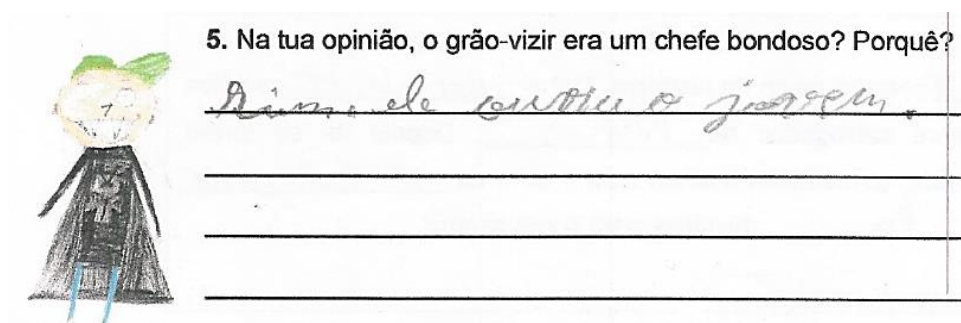 5. Na tua opinião, o grão-vizir era um chefe bondoso? Porquê?
Sim, ele ouviu o jovem.